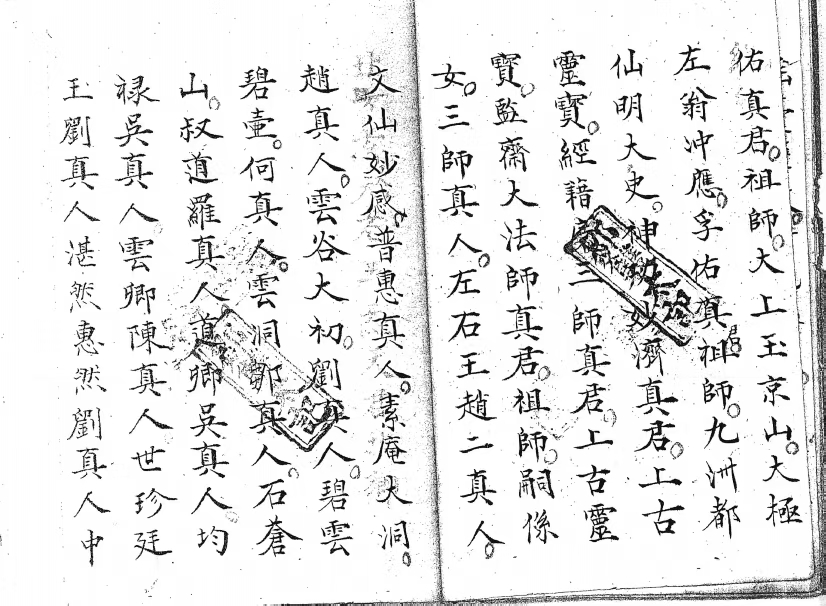 佑真君。祖師。大上玉京山。大極
左翁冲應。孚佑真君祖師。九洲都
仙明大史。神功妙濟真君。上古
靈寶。經籍三師真君。上古靈
寶。監齋大法師真君。祖師。嗣係
女。三師真人。左右王趙二真人。
文仙妙感。普惠真人。素庵大洞。
趙真人。雲谷大初。劉真人。碧雲
碧壷。何真人。雲洞鄒真人。石蒼
山。叔道羅真人道卿吳真人均
禄吳真人雲卿陳真人世珍廷
玉劉真人湛然惠然劉真人中